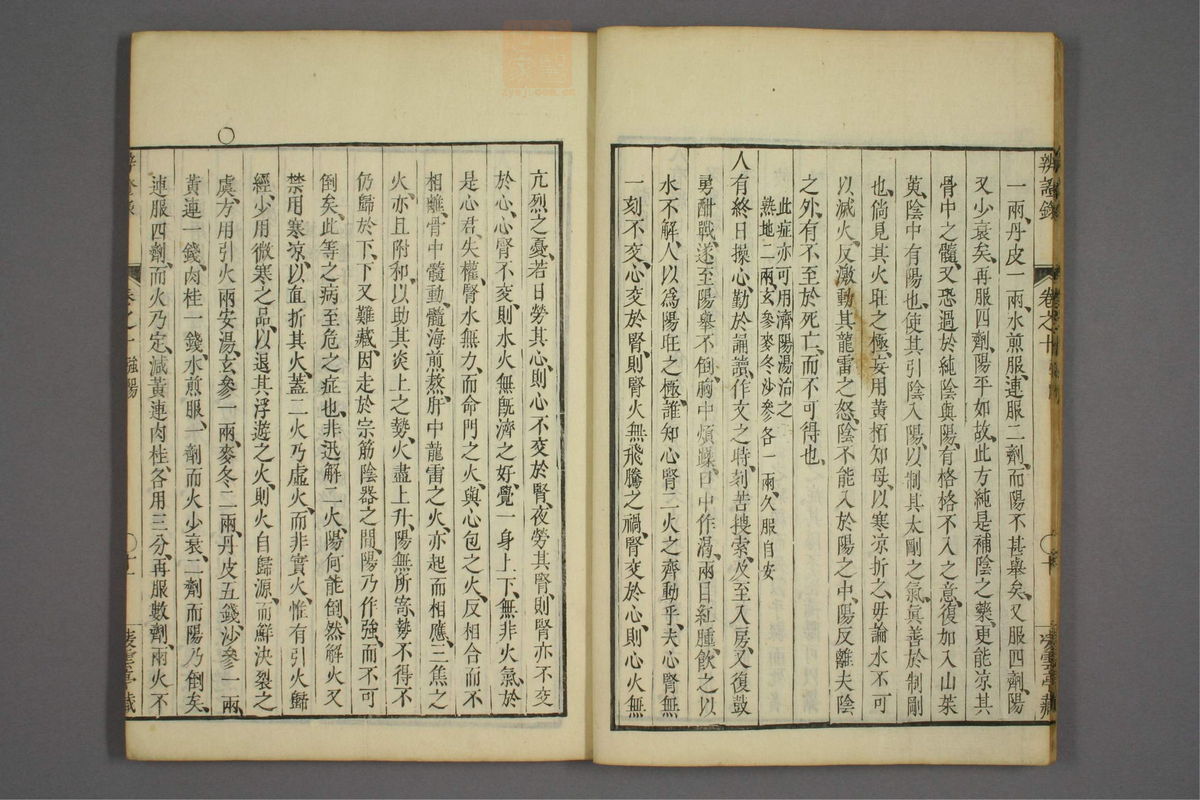 辨證錄 卷之十 強陽 凌雲亭藏
一兩、丹皮一兩、水煎服、連服二劑、而陽不甚舉矣、又服四劑、陽
又少衰矣、再服四劑、陽平如故、此方純是補陰之藥、更能凉其
骨中之髓、又恐過於純陰與陽、有格格不入之意、復加入山茱
萸、陰中有陽也、使其引陰入陽、以制其太剛之氣、眞善於制剛
也、倘見其火旺之極、妄用黃栢知母、以寒凉折之、毋論水不可
以滅火、反激動其龍雷之怒、陰不能入於陽之中、陽反離夫陰
之外、有不至於死亡、而不可得也、
此症亦可用濟陽湯治之
熟地二兩、玄參麥冬沙參各一兩、久服自安
人有終日操心、勤於誦讀、作文之時、刻苦搜索、及至入房、又復鼓
勇酣戰、遂至陽舉不倒、胸中煩躁、口中作渴、兩目紅腫、飲之以
水不解、人以爲陽旺之極、誰知心腎二火之齊動乎、夫心腎無
一刻不交、心交於腎、則腎火無飛騰之禍、腎交於心、則心火無
亢烈之憂、若日勞其心、則心不交於腎、夜勞其腎、則腎亦不交
於心、心腎不交、則水火無旣濟之好、覺一身上下、無非火氣、於
是心君失權、腎水無力、而命門之火、與心包之火、反相合而不
相離、骨中髓動、髓海煎熬、肝中龍雷之火、亦起而相應、三焦之
火、亦且附和、以助其炎上之勢、火盡上升、陽無所寄、勢不得不
仍歸於下、下又難藏、因走於宗筋陰器之間、陽乃作強、而不可
倒矣、此等之病、至危之症也、非迅解二火、陽何能倒、然解火又
禁用寒凉、以直折其火、蓋二火乃虛火、而非實火、惟有引火歸
經、少用微寒之品、以退其浮遊之火、則火自歸源、而鮮決裂之
○
虞、方用引火兩安湯、玄參一兩、麥冬二兩、丹皮五錢、沙參一兩、
黃連一錢、肉桂一錢、水煎服、一劑而火少衰、二劑而陽乃倒矣、
連服四劑、而火乃定、減黃連肉桂、各用三分、再服數劑、兩火不
辨證錄 卷之十 強陽 〇十一 凌雲亭藏
zysj.com.cn